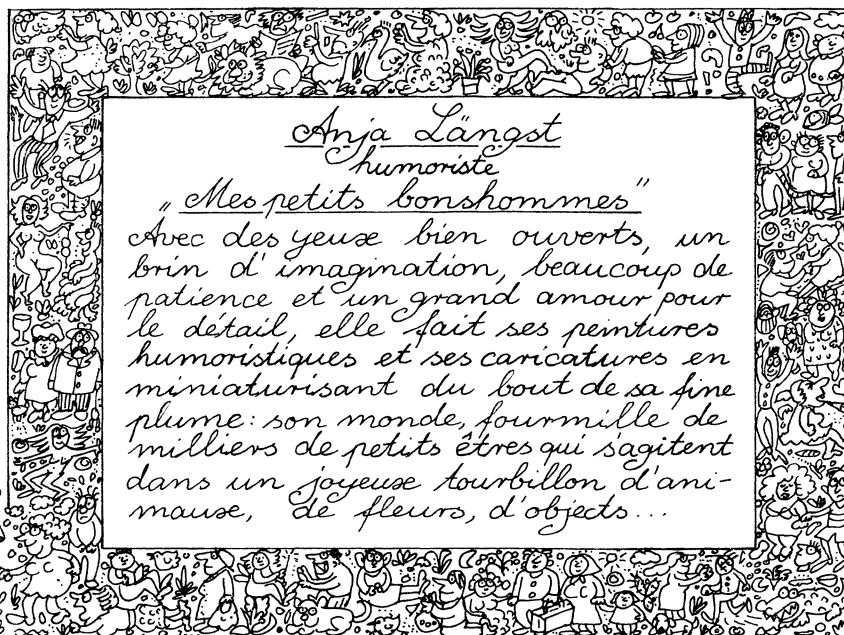 Anja Längst
humoriste
„Mes petits bonshommes"
Avec des yeux bien ouverts, un
brin d'imagination, beaucoup de
patience et un grand amour pour
le détail, elle fait ses peintures
humoristiques et ses caricatures en
miniaturisant du bout de sa fine
plume: son monde, fourmille de
milliers de petits êtres qui s'agitent
dans un joyeux tourbillon d'ani-
maux, de fleurs, d'objects...